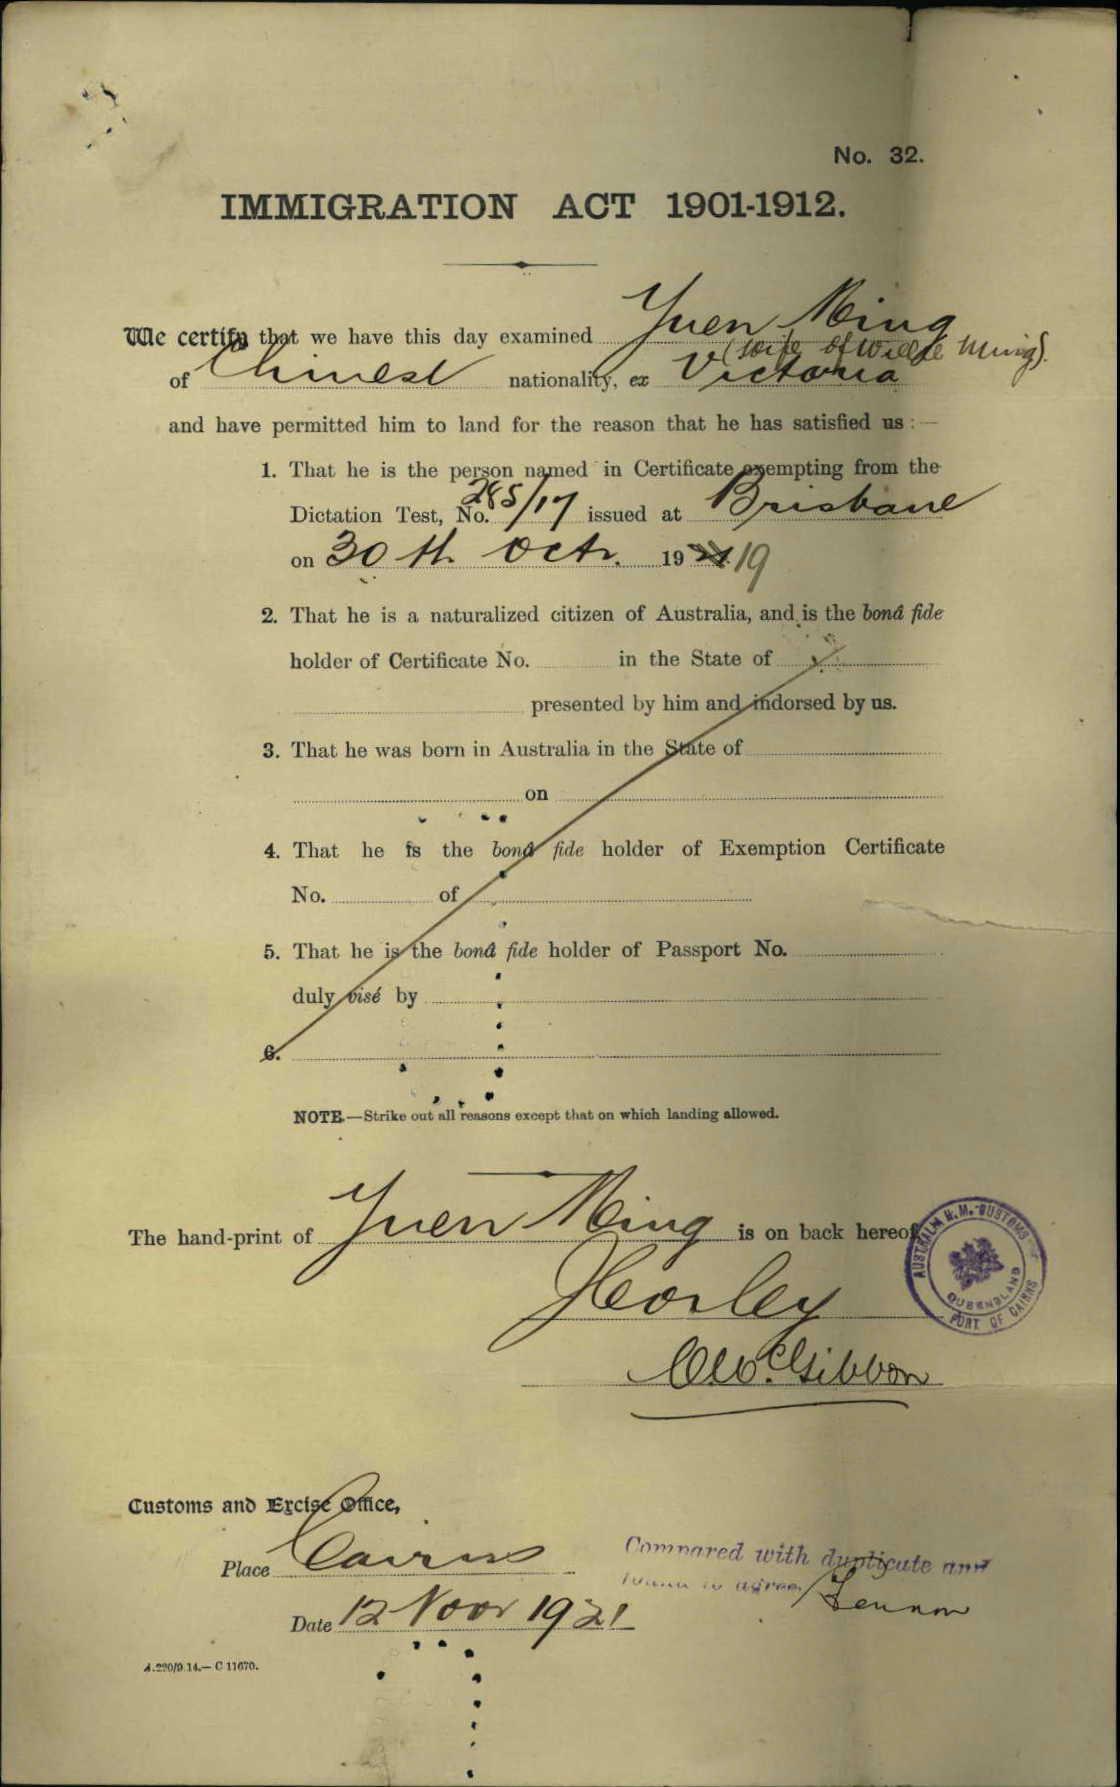 No. 32.
IMMIGRATION ACT 1901-1912.
We certify that we have this day examined Yuen Ming
(wife of Willie Ming).
of Chinese nationality, ex Victoria
and have permitted him to land for the reason that he has satisfied us:—
1. That he is the person named in Certificate exempting from the
Dictation Test, No. 285/17 issued at Brisbane
on 30th Octr. 19 19
2. That he is a naturalized citizen of Australia, and is the bonâ fide
holder of Certificate No. in the State of
presented by him and indorsed by us.
3. That he was born in Australia in the State of
on
4. That he is the bonâ fide holder of Exemption Certificate
No. of
5. That he is the bonâ fide holder of Passport No.
duly visé by
6.
NOTE.—Strike out all reasons except that on which landing allowed.
The hand-print of Yuen Ming is on back hereof.
AUSTRALIA H.M. CUSTOMS
QUEENSLAND
PORT OF CAIRNS
Horley
McGibbon
Customs and Excise Office,
Place Cairns
Compared with duplicate and
found to agree. Lennon
Date 12 Novr 1921
A.220/9.14.—C 11670.